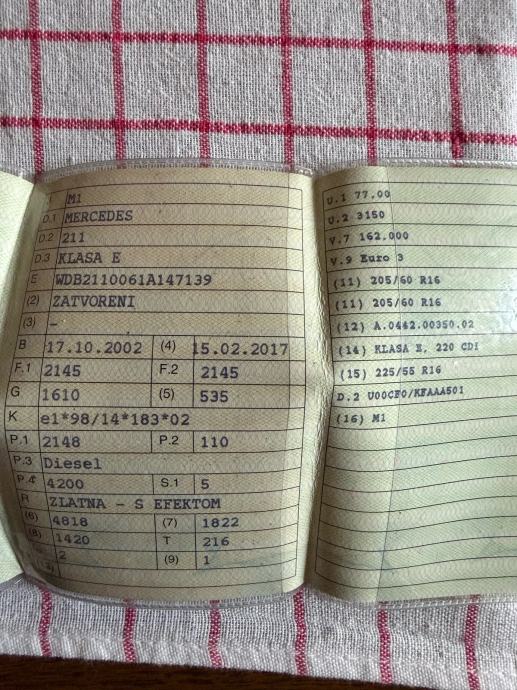 J M1
D.1 MERCEDES
D.2 211
D.3 KLASA E
E WDB2110061A147139
(2) ZATVORENI
(3) -
B 17.10.2002 (4) 15.02.2017
F.1 2145 F.2 2145
G 1610 (5) 535
K e1*98/14*183*02
P.1 2148 P.2 110
P.3 Diesel
P.4 4200 S.1 5
R ZLATNA - S EFEKTOM
(6) 4818 (7) 1822
(8) 1420 T 216
2 (9) 1
U.1 77,00
U.2 3150
V.7 162,000
V.9 Euro 3
(11) 205/60 R16
(11) 205/60 R16
(12) A.0442.00350.02
(14) KLASA E, 220 CDI
(15) 225/55 R16
D.2 U00CF0/KFAAA501
(16) M1